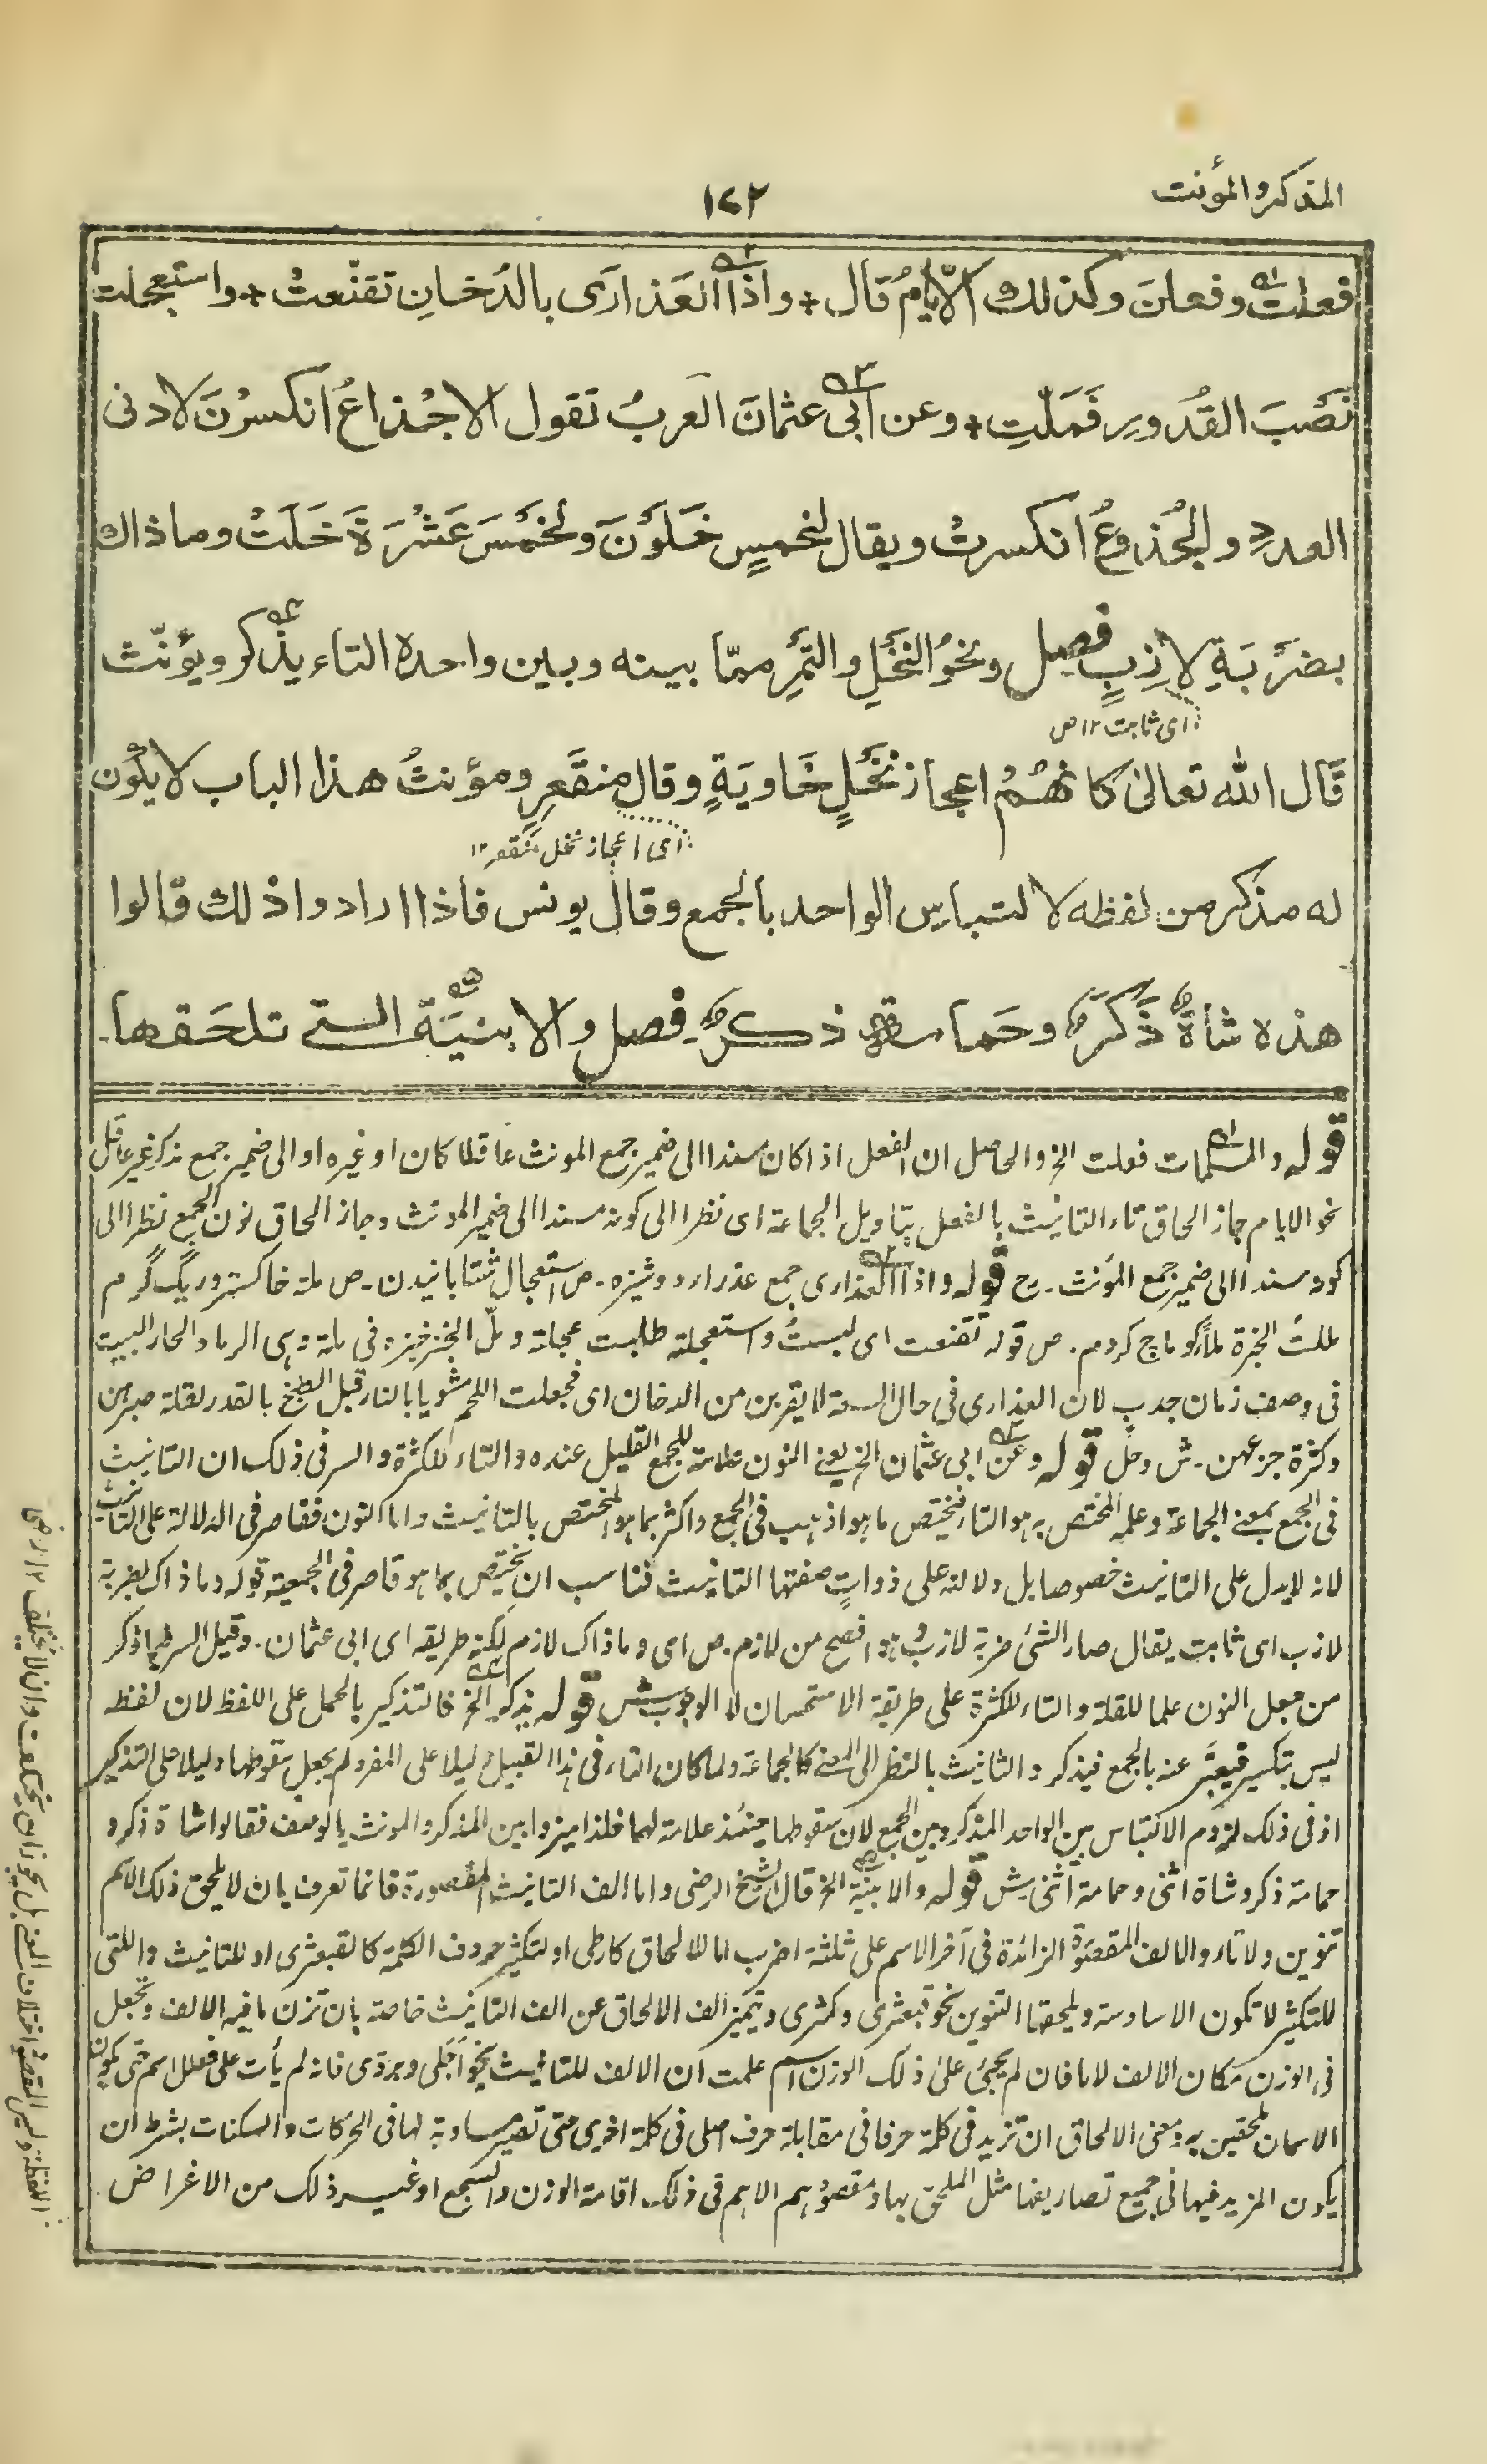 المذكر والمؤنث
١٤٢
فعلتْ وفعلنَ وكذلك الايّامُ قال + واذا العَذارَى بالدُخانِ تقنّعتْ + واستعجلت
نَصْبَ القُدورِ فَمَلّتِ + وعن ابى عثمانَ العَربُ تقول الاجْذاعُ انكسرْنَ لادنى
العددِ والجُذوعُ انكسرتْ ويقال لخمسٍ خَلَوْنَ ولخَمْسَ عَشْرَةَ خَلَتْ وما ذاك
بضَرْبَةِ لازبٍ فصل ونحوُ النَخْلِ والتَمْرِ ممّا بينه وبين واحده التاء يذكر ويؤنّث
اى ثابت ١٢ ص
قَال الله تعالىٰ كانَهُمْ اعجاز نَخْلٍ خَاوِيَةٍ وقال منقَعِرٍ ومؤنثُ هذا الباب لا يكون
اى اعجاز نخل منقعر ١٢
له مذكر من لفظه لالتباس الواحد بالجمع وقال يونس فاذا ارادوا ذلك قالوا
هذه شاةٌ ذَكَرٌ وحَمامةٌ ذكرٌ فصل والابنيَة التى تلحَقها
قوله والمسلمات فعلت الخ والحاصل ان الفعل اذا كان مسندا الى ضمير جمع المونث عاقلا كان او غيره او الى ضمير جمع مذكر غير عاقل
نحو الايام جاز الحاق تاء التانيث بالفعل بتاويل الجماعة اى نظرا الى كونه مسندا الى ضمير المونث وجاز الحاق نون الجمع نظرا الى
كونه مسندا الى ضمير جمع المؤنث - ح قوله واذا العذارى جمع عذراء دوشيزه - ص استعجال شتابانيدن - ص ملة خاكستر وريگ گرم
مللت الخبزة ملاً كوماج كردم - ص قوله تقنعت اى لبستْ واستعجلته طلبت عجلته وملّ الخبز خبزه فى ملة وهى الرماد الحار البيت
فى وصف زمان جدبٍ لان العذارى فى حال السعة لا يقربن من الدخان اى فجعلت اللحم مشويا بالنار قبل الطبخ بالقدر لقلة صبرهن
وكثرة جزعهن - ش وحل قوله وعن ابى عثمان الخ يعنى النون علامة للجمع القليل عنده والتاء للكثرة والسر فى ذلك ان التانيث
فى الجمع بمعنى الجماعة وعلمه المختص به هو التاء فيختص ما هو اذهب فى الجمع واكثر بما هو المختص بالتانيث واما النون فقاصر فى الدلالة على التانيث
لانه لا يدل على التانيث خصوصا بل دلالته على ذواتٍ صفتها التانيث فناسب ان يختص بما هو قاصر فى الجمعية قوله وما ذاك بضربة
لازب اى ثابت يقال صار الشئ ضربة لازب وهو افصح من لازم - ص اى وما ذاك لازم لكنه طريقه اى ابى عثمان - وقيل السر فيما ذكر
من جعل النون علما للقلة والتاء للكثرة على طريقة الاستحسان لا الوجوب ش قوله يذكر الخ فالتذكير بالحمل على اللفظ لان لفظه
ليس بتكسير فيعبّر عنه بالجمع فيذكر والتانيث بالنظر الى المعنى كالجماعة ولما كان التاء فى هذا القبيل دليلا على المفرد لم يجعل سقوطها دليلا على التذكير
اذ فى ذلك لزوم الالتباس بين الواحد المذكر وبين الجمع لان سقوطها حينئذ علامة لهما فلذا ميزوا بين المذكر والمونث بالوصف فقالوا شاة ذكر و
حمامة ذكر وشاة انثى وحمامة انثى ش قوله والابنية الخ قال الشيخ الرضى واما الف التانيث المقصورة فانما تعرف بان لا يلحق ذلك الاسم
تنوين ولا تاء والالف المقصورة الزائدة فى آخر الاسم على ثلثة اضرب اما للالحاق كارطى او لتكثير حروف الكلمة كالقبعثرى او للتانيث والتى
للتكثير لا تكون الا سادسة ويلحقها التنوين نحو قبعثرى وكمثرى وتميز الف الالحاق عن الف التانيث خاصة بان تزن ما فيه الالف وتجعل
فى الوزن مكان الالف لاما فان لم يجئ على ذلك الوزن اسم علمت ان الالف للتانيث نحو اَجَلى وبردى فانه لم يأت على فعلل اسم حتى يكون
الاسمان ملحقين به ومعنى الالحاق ان تزيد فى كلمة حرفا فى مقابلة حرف اصلى فى كلمة اخرى حتى تصير مساوية لها فى الحركات والسكنات بشرط ان
يكون المزيد فيها فى جميع تصاريفها مثل الملحق بها ومقصودهم الاهم فى ذلك اقامة الوزن والسجع او غير ذلك من الاغراض